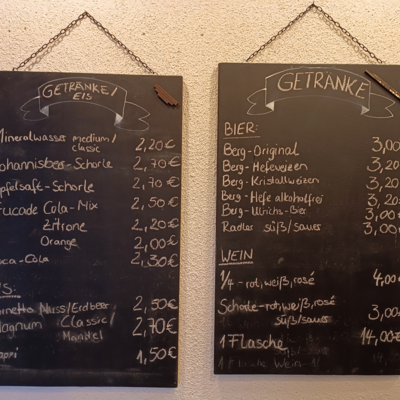 GETRÄNKE/
EIS
Mineralwasser medium/
classic 2,20€
Johannisbeer-Schorle 2,70€
Apfelsaft-Schorle 2,70€
Frucade Cola-Mix 2,50€
Zitrone 2,20€
Orange 2,00€
Coca-Cola 2,30€
Nuss/Erdbeer 2,50€
Magnum Classic/ 2,70€
Mandel
1,50€
GETRÄNKE
BIER:
Berg-Original 3,00
Berg-Hefeweizen 3,20
Berg-Kristallweizen 3,20
Berg-Hefe alkoholfrei 3,20
Berg-Ulrichs-Bier 3,00€
Radler süß/sauer 3,00€
WEIN
1/4 - rot, weiß, rosé 4,00€
Schorle-rot, weiß, rosé 3,00€
süß/sauer
1 Flasche 14,00€